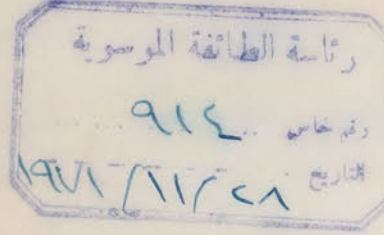 رئاسة الطائفة الموسوية
رقم خاص ٩١٤
التاريخ ٢٨/١١/١٩٧١